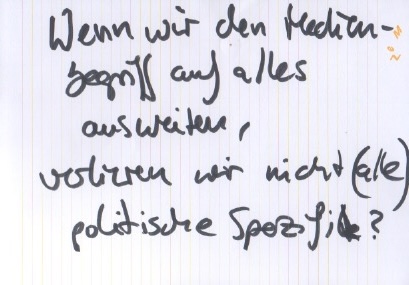 Wenn wir den Medien-
begriff auf alles
ausweiten,
verlieren wir nicht (alle)
politische Spezifik?